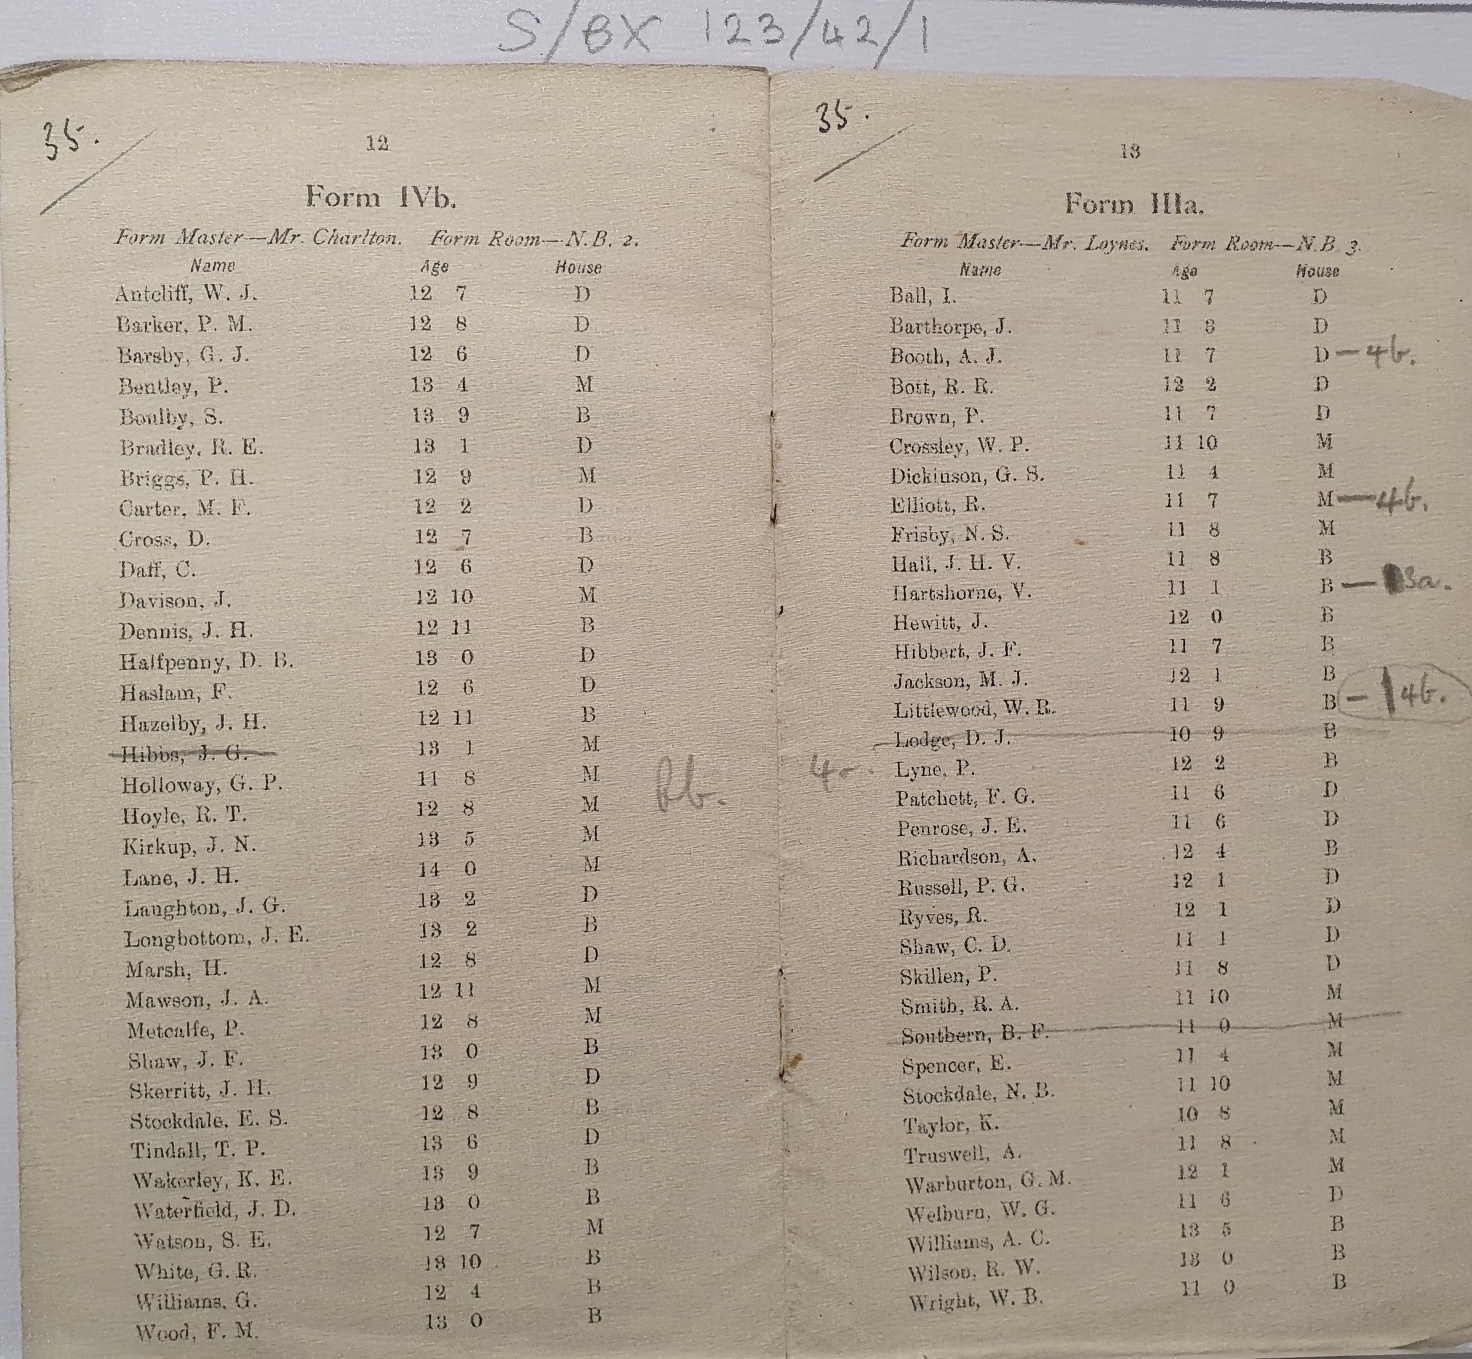 S/BX 123/42/1
35.
12
Form IVb.
Form Master—Mr. Charlton. Form Room—N.B. 2.
Name Age House
Antcliff, W. J. 12 7 D
Barker, P. M. 12 8 D
Barsby, G. J. 12 6 D
Bentley, P. 13 4 M
Boulby, S. 13 9 B
Bradley, R. E. 13 1 D
Briggs, P. H. 12 9 M
Carter, M. F. 12 2 D
Cross, D. 12 7 B
Daff, C. 12 6 D
Davison, J. 12 10 M
Dennis, J. H. 12 11 B
Halfpenny, D. B. 13 0 D
Haslam, F. 12 6 D
Hazelby, J. H. 12 11 B
Hibbs, J. G. 13 1 M
Holloway, G. P. 11 8 M
Hoyle, R. T. 12 8 M
Kirkup, J. N. 13 5 M
Lane, J. H. 14 0 M
Laughton, J. G. 13 2 D
Longbottom, J. E. 13 2 B
Marsh, H. 12 8 D
Mawson, J. A. 12 11 M
Metcalfe, P. 12 8 M
Shaw, J. F. 13 0 B
Skerritt, J. H. 12 9 D
Stockdale, E. S. 12 8 B
Tindall, T. P. 13 6 D
Wakerley, K. E. 13 9 B
Waterfield, J. D. 13 0 B
Watson, S. E. 12 7 M
White, G. R. 13 10 B
Williams, G. 12 4 B
Wood, F. M. 13 0 B
35.
13
Form IIIa.
Form Master—Mr. Loynes. Form Room—N.B. 3.
Name Age House
Ball, I. 11 7 D
Barthorpe, J. 11 8 D
Booth, A. J. 11 7 D — 4b.
Bott, R. R. 12 2 D
Brown, P. 11 7 D
Crossley, W. P. 11 10 M
Dickinson, G. S. 11 4 M
Elliott, R. 11 7 M — 4b.
Frisby, N. S. 11 8 M
Hall, J. H. V. 11 8 B
Hartshorne, V. 11 1 B — 3a.
Hewitt, J. 12 0 B
Hibbert, J. F. 11 7 B
Jackson, M. J. 12 1 B
Littlewood, W. R. 11 9 B — 4b.
Lodge, D. J. 10 9 B
Lyne, P. 12 2 B
Patchett, F. G. 11 6 D
Penrose, J. E. 11 6 D
Richardson, A. 12 4 B
Russell, P. G. 12 1 D
Ryves, R. 12 1 D
Shaw, C. D. 11 1 D
Skillen, P. 11 8 D
Smith, R. A. 11 10 M
Southern, B. F. 11 0 M
Spencer, E. 11 4 M
Stockdale, N. B. 11 10 M
Taylor, K. 10 8 M
Truswell, A. 11 8 M
Warburton, G. M. 12 1 M
Welburn, W. G. 11 6 D
Williams, A. C. 13 5 B
Wilson, R. W. 13 0 B
Wright, W. B. 11 0 B